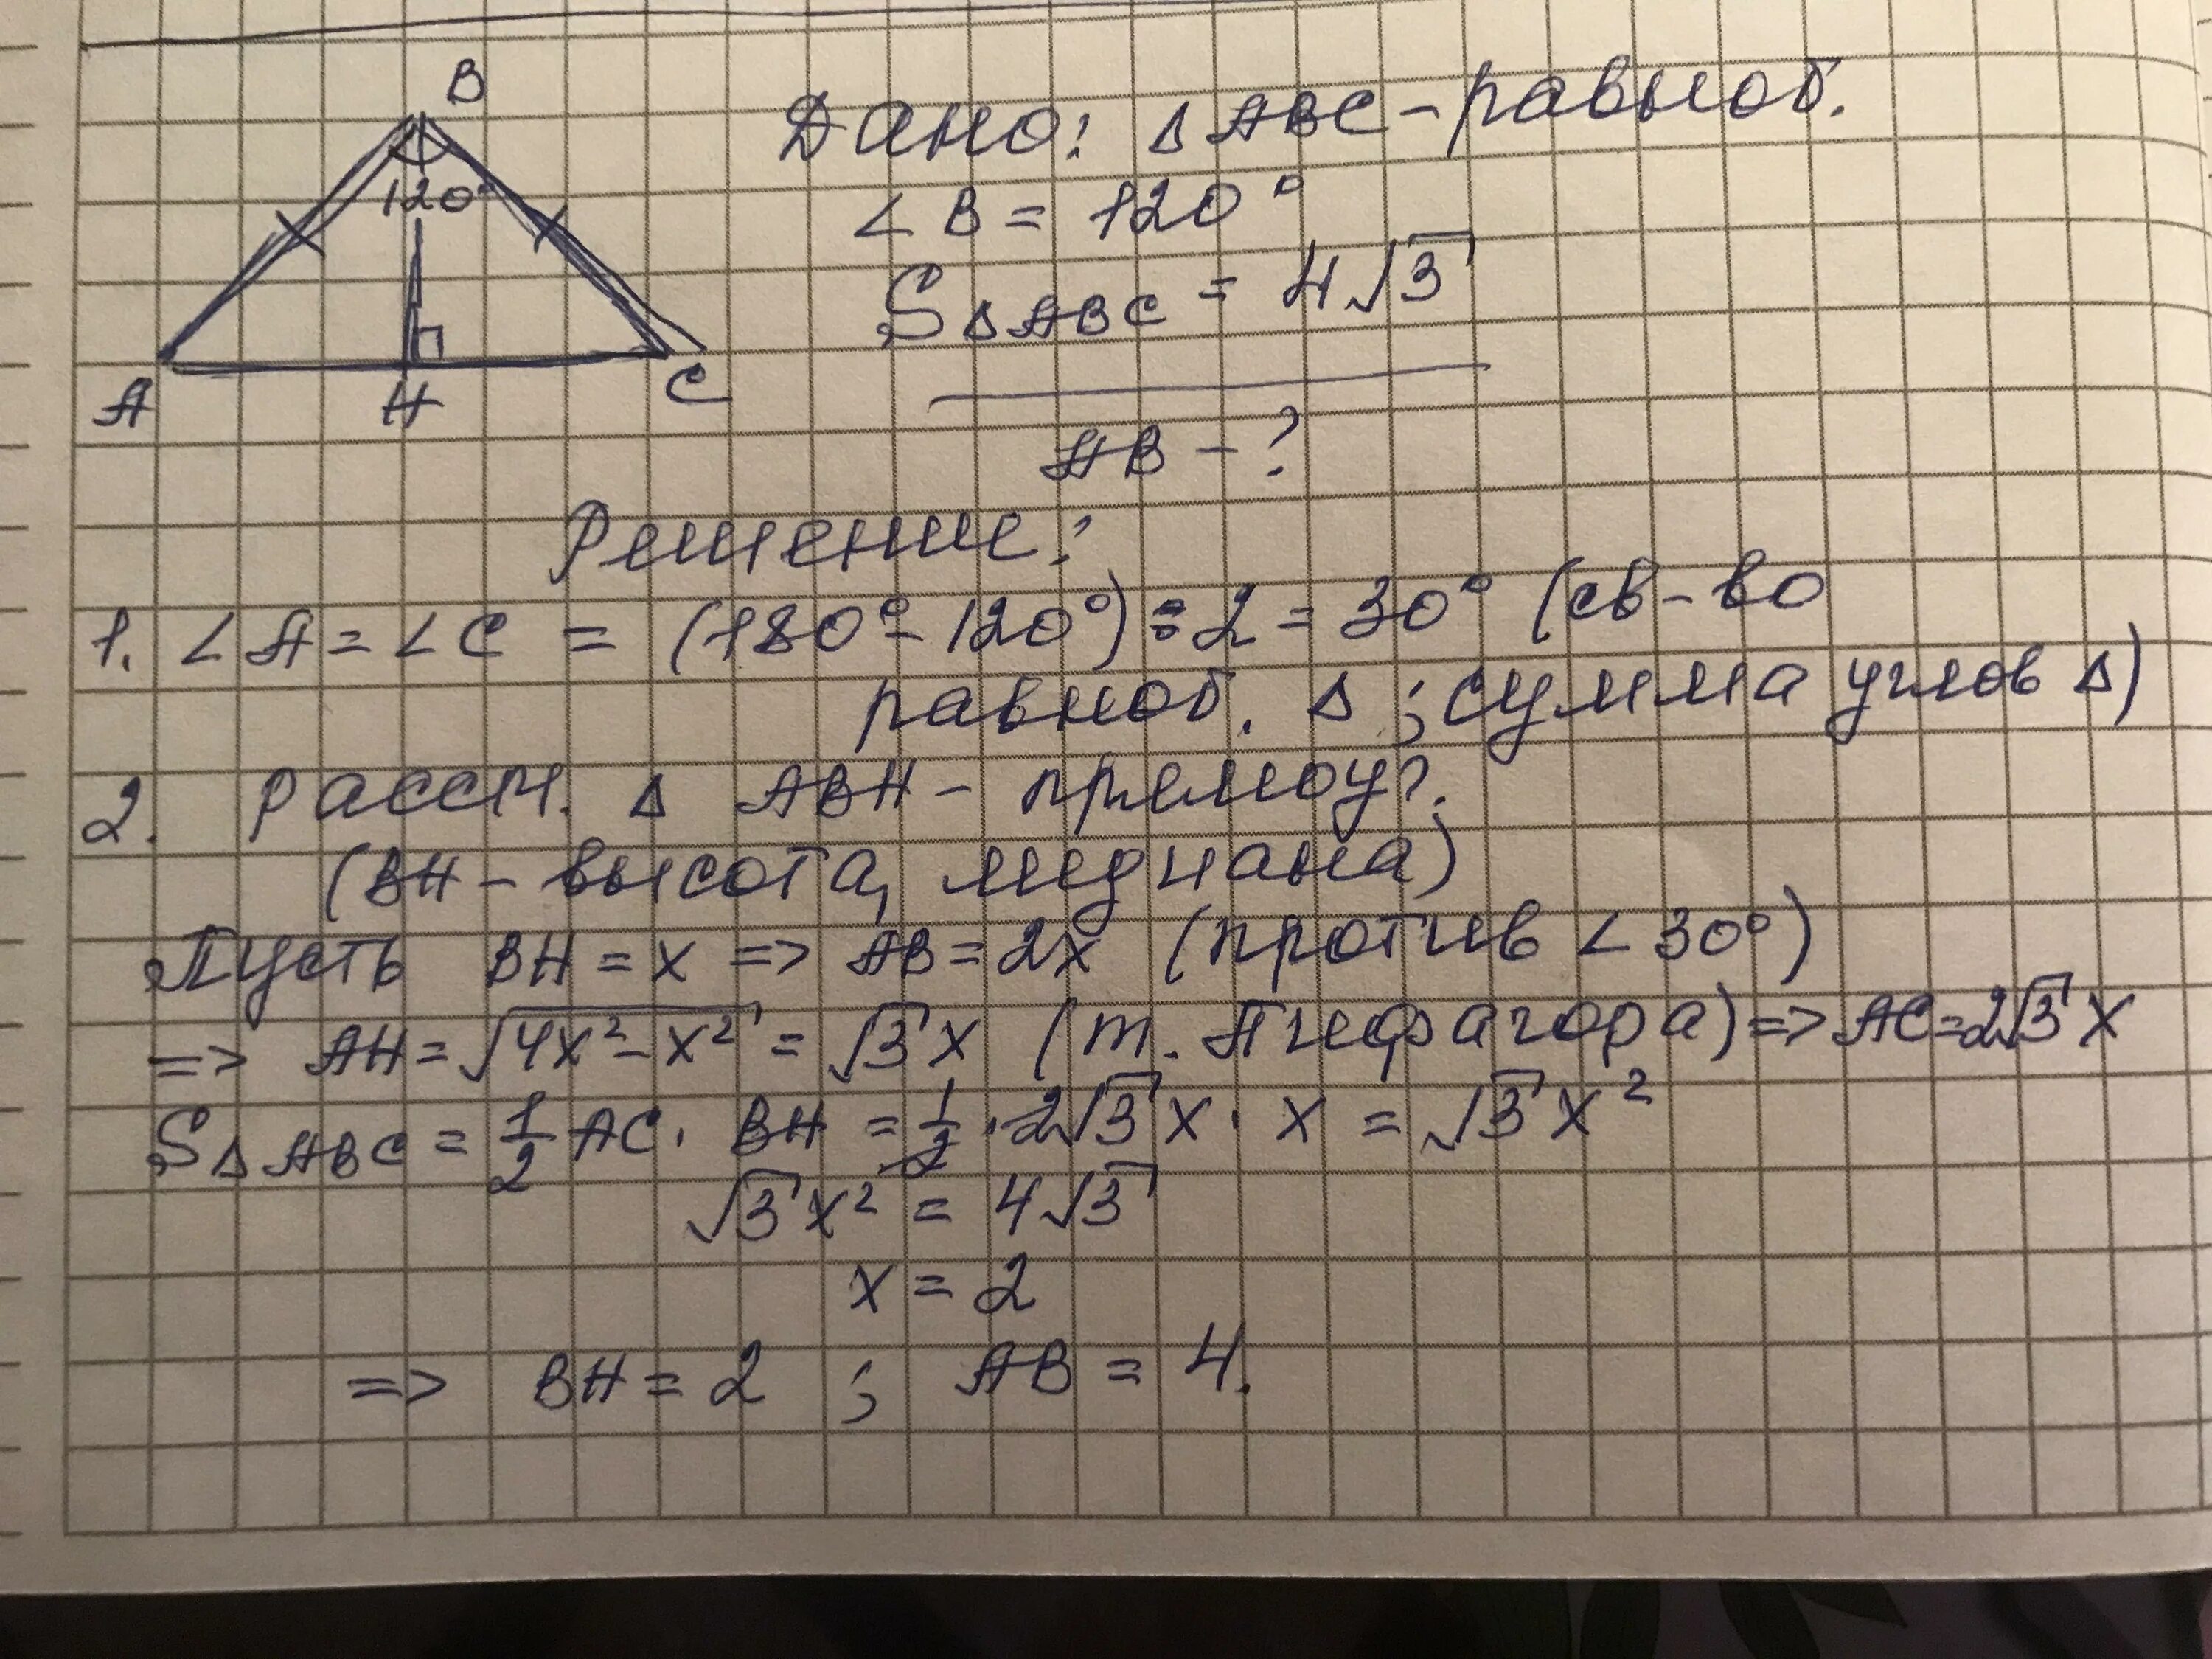 B
120°
A H C
Дано: △ABC - равноб.
∠B = 120°
S△ABC = 4√3
AB - ?
Решение:
1. ∠A = ∠C = (180° - 120°) : 2 = 30° (св-во
равноб. △; сумма углов △)
2. Рассм. △ ABH - прямоуг.
(BH - высота, медиана)
Пусть BH = x => AB = 2x (против ∠30°)
=> AH = √(4x² - x²) = √3x (т. Пифагора) => AC = 2√3x
S△ABC = 1/2 AC · BH = 1/2 · 2√3x · x = √3x²
√3x² = 4√3
x = 2
=> BH = 2 ; AB = 4.